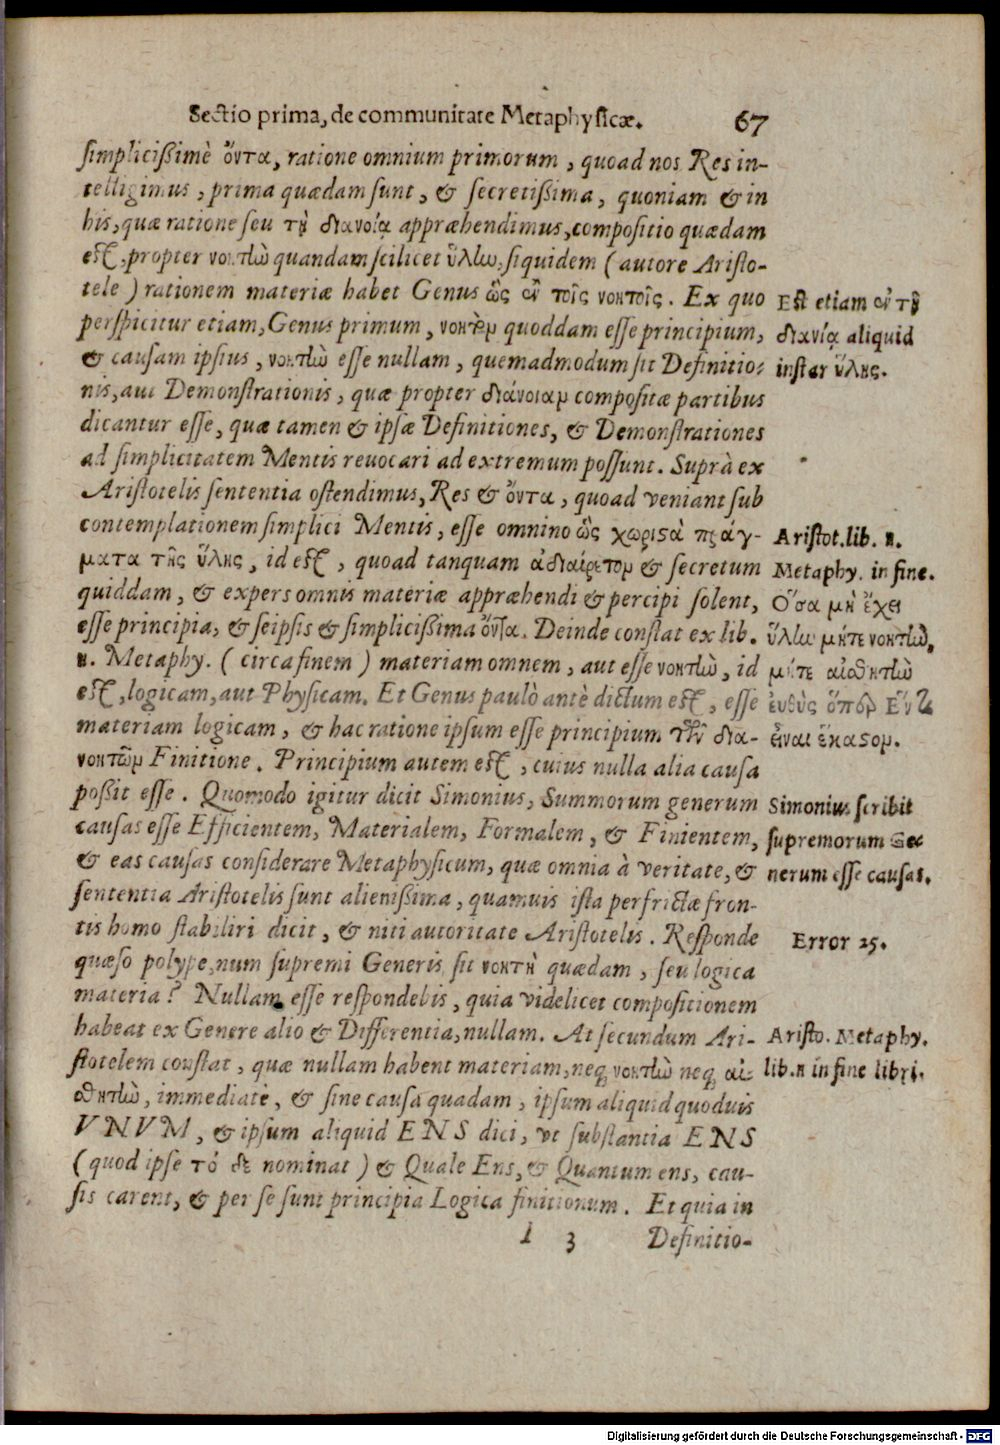 Sectio prima, de communitate Metaphysicæ. 67
simplicißimè ὄντα, ratione omnium primorum, quoad nos Res in-
telligimus, prima quædam sunt, & secretißima, quoniam & in
his, quæ ratione seu τῇ διανοίᾳ appræhendimus, compositio quædam
est, propter νοητὼ quandam scilicet ὕλω, siquidem (autore Aristo-
tele) rationem materiæ habet Genus ὡς ἐν τοῖς νοητοῖς. Ex quo
perspicitur etiam, Genus primum, νοητὸμ quoddam esse principium,
& causam ipsius, νοητὼ esse nullam, quemadmodum sit Definitio-
nis, aut Demonstrationis, quæ propter διάνοιαμ compositæ partibus
dicantur esse, quæ tamen & ipsæ Definitiones, & Demonstrationes
ad simplicitatem Mentis reuocari ad extremum possunt. Suprà ex
Aristotelis sententia ostendimus, Res & ὄντα, quoad veniant sub
contemplationem simplici Mentis, esse omnino ὡς χωριςὰ πράγ-
ματα τῆς ὕλης, id est, quoad tanquam ἀδιαίρετομ & secretum
quiddam, & expers omnis materiæ appræhendi & percipi solent,
esse principia, & seipsis & simplicißima ὄντα. Deinde constat ex lib.
η. Metaphy. (circa finem) materiam omnem, aut esse νοητὼ, id
est, logicam, aut Physicam. Et Genus paulò antè dictum est, esse
materiam logicam, & hac ratione ipsum esse principium τῶν δια-
νοητῶμ Finitione. Principium autem est, cuius nulla alia causa
poßit esse. Quomodo igitur dicit Simonius, Summorum generum
causas esse Efficientem, Materialem, Formalem, & Finientem,
& eas causas considerare Metaphysicum, quæ omnia à veritate, &
sententia Aristotelis sunt alienißima, quamuis ista perfrictæ fron-
tis homo stabiliri dicit, & niti autoritate Aristotelis. Responde
quæso polype, num supremi Generis sit νοητὴ quædam, seu logica
materia? Nullam esse respondebis, quia videlicet compositionem
habeat ex Genere alio & Differentia, nullam. At secundum Ari-
stotelem constat, quæ nullam habent materiam, neq; νοητὼ neq; αἰ-
σθητὼ, immediatè, & sine causa quadam, ipsum aliquid quoduis
VNVM, & ipsum aliquid ENS dici, vt substantia ENS
(quod ipse τό δε nominat) & Quale Ens, & Quantum ens, cau-
sis carent, & per se sunt principia Logica finitionum. Et quia in
I 3 Definitio-
Est etiam ἐν τῇ
διανίᾳ aliquid
instar ὕλης.
Aristot. lib. η.
Metaphy. in fine.
Ὅσα μὴ ἔχει
ὕλω μήτε νοητὼ,
μήτε αἰσθητὼ
ἐυθὺς ὅπερ Ἕν τι
εἶναι ἕκαςομ.
Simonius scribit
supremorum Ge-
nerum esse causas.
Error 25.
Aristo. Metaphy.
lib. η in fine libri.
Digitalisierung gefördert durch die Deutsche Forschungsgemeinschaft - DFG